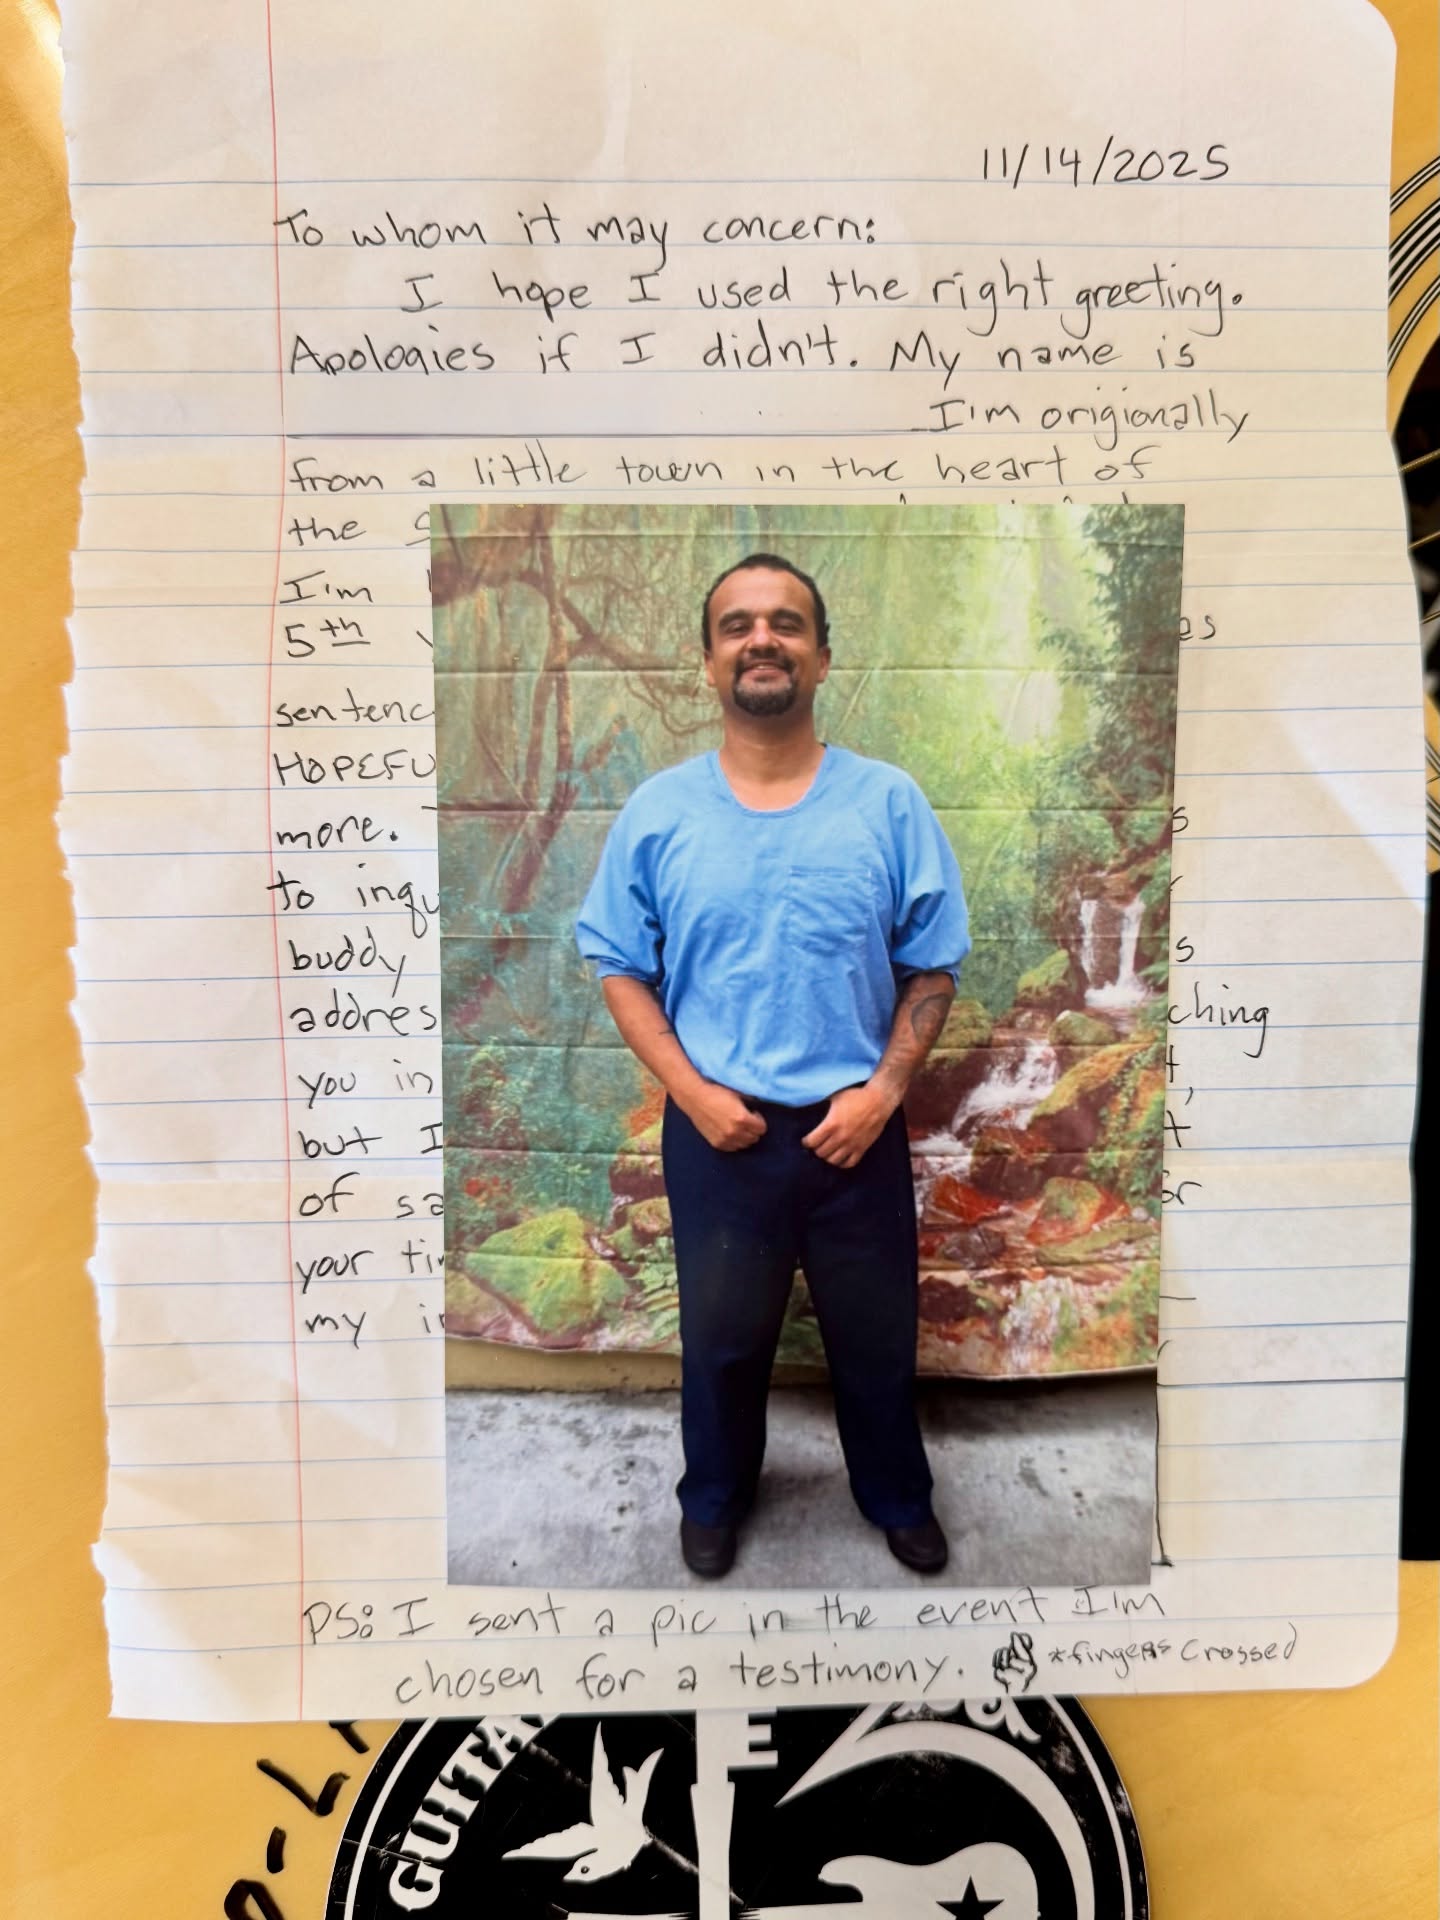 11/14/2025
To whom it may concern:
I hope I used the right greeting.
Apologies if I didn't. My name is
I'm origionally
from a little town in the heart of
the
I'm
5th
sentenc
HOPEFU
more.
to inqu
buddy
addres ching
you in
but I
of sa
your tim
my in
PS: I sent a pic in the event I'm
chosen for a testimony. *fingers crossed
GUITA
E